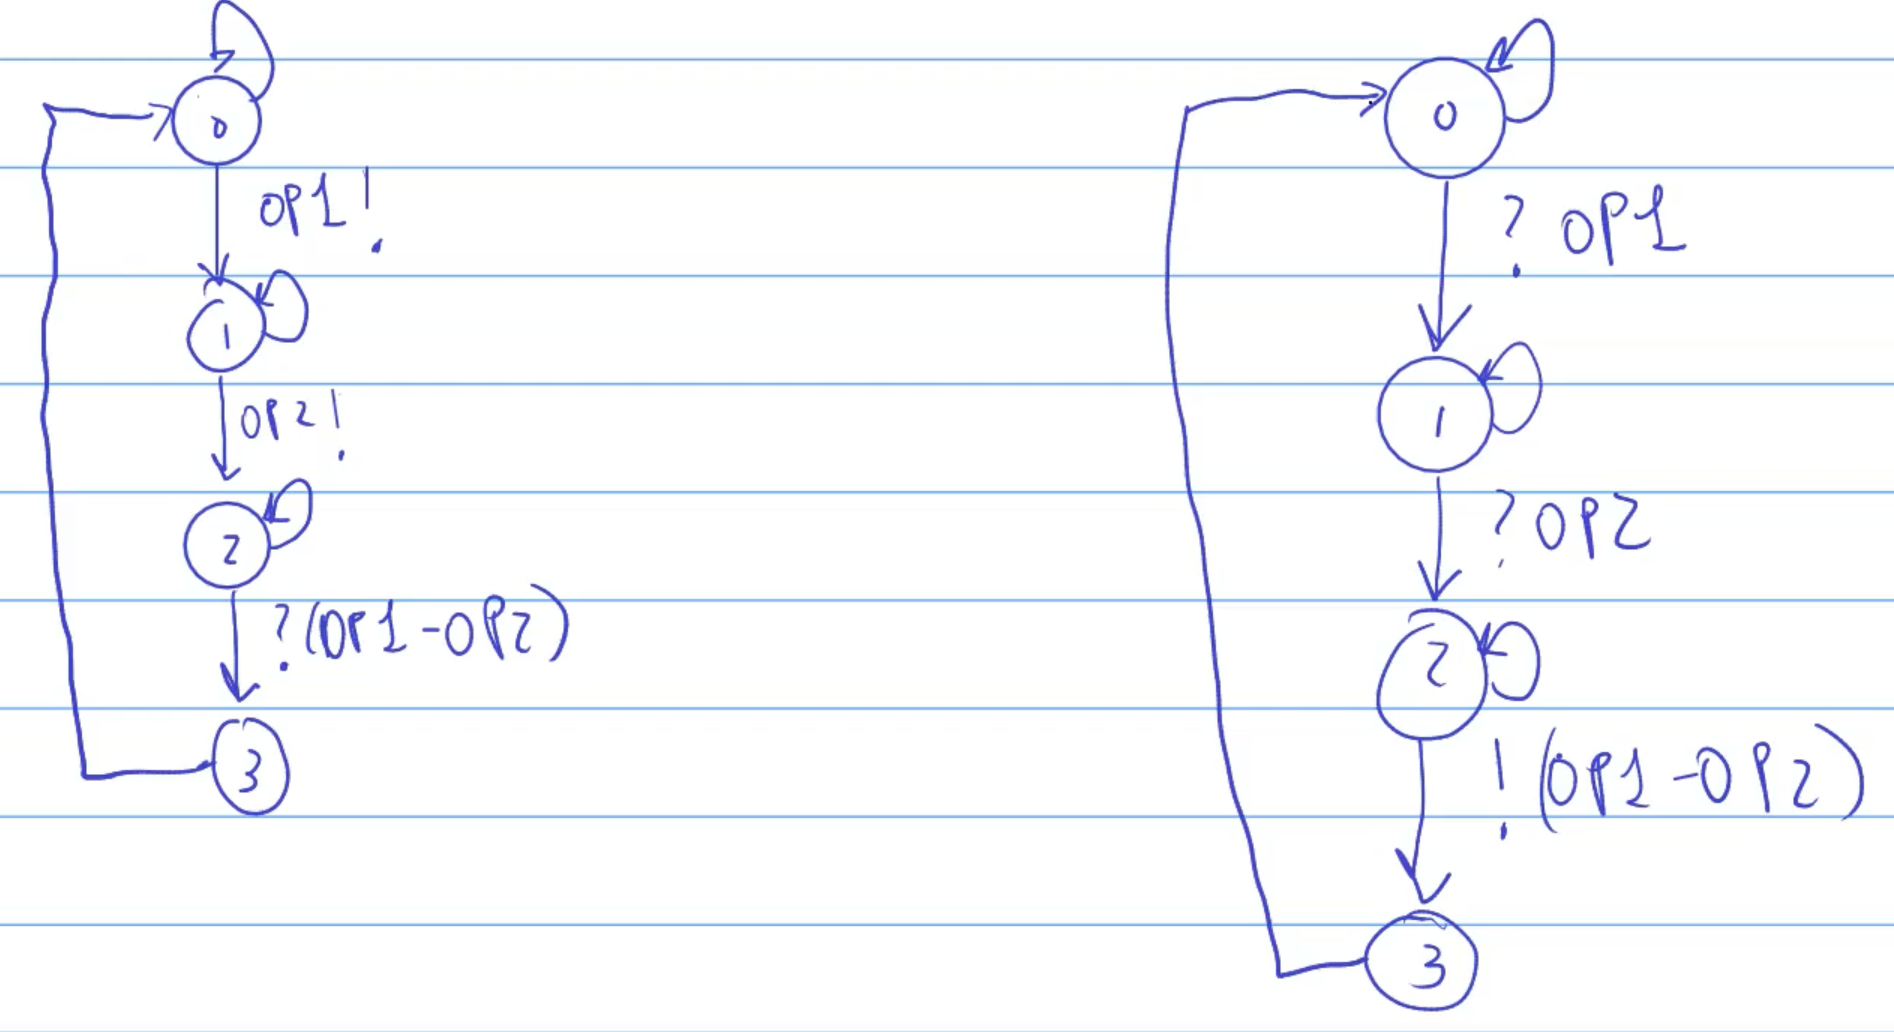 0
OP1!
1
OP2!
2
?(OP1-OP2)
3
0
? OP1
1
? OP2
2
!(OP1-OP2)
3